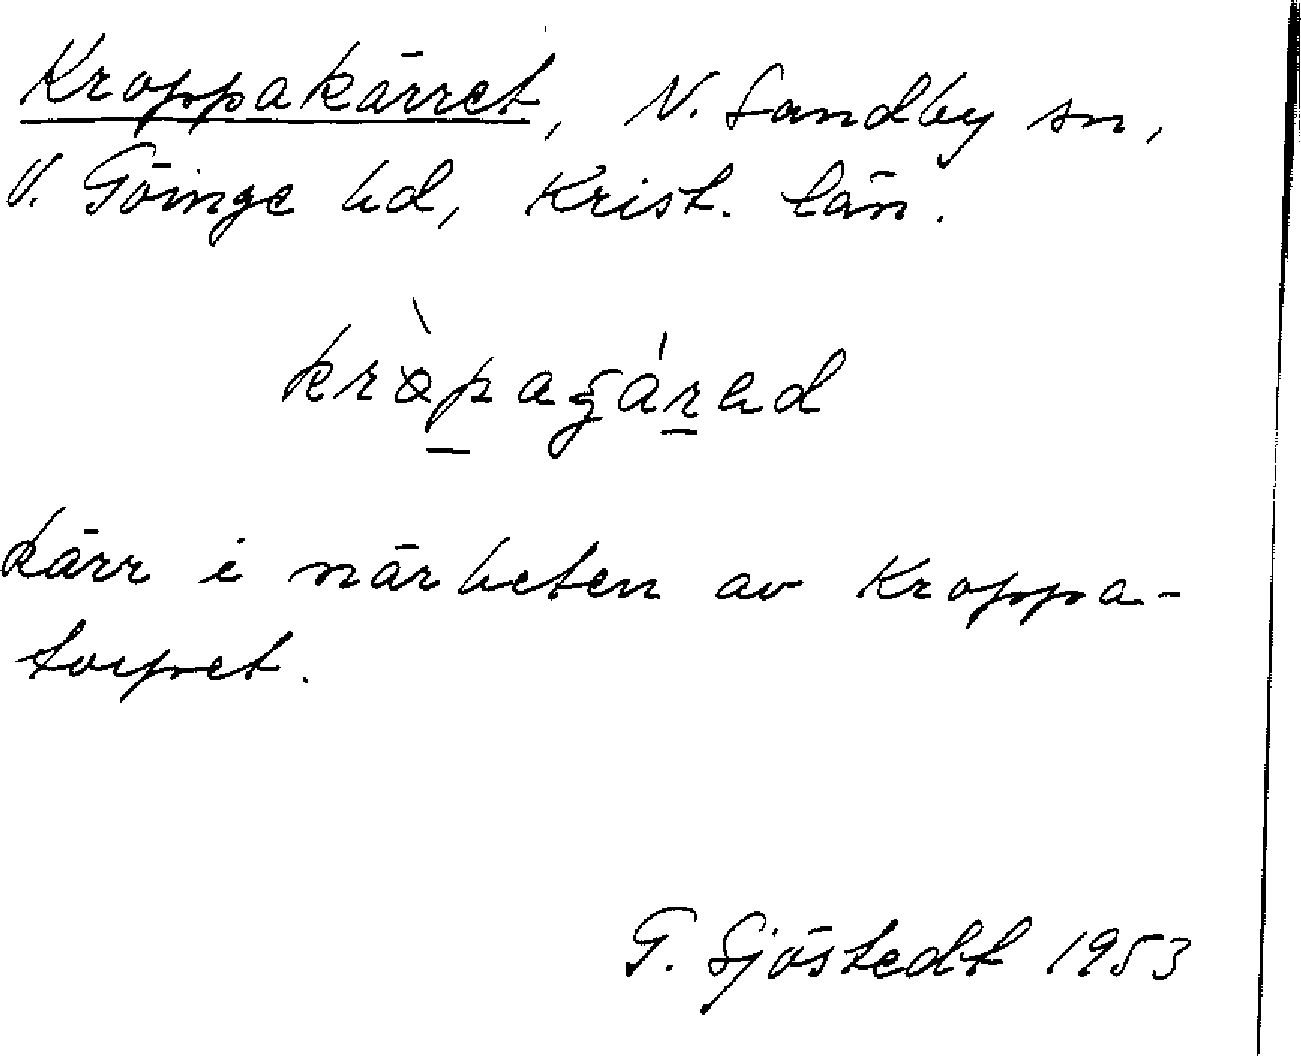 Kroppakärret, N. Sandby sn,
V. Göinge hd, Krist. län.
kärr i närheten av Kroppa-
torpet.
G. Sjöstedt 1953